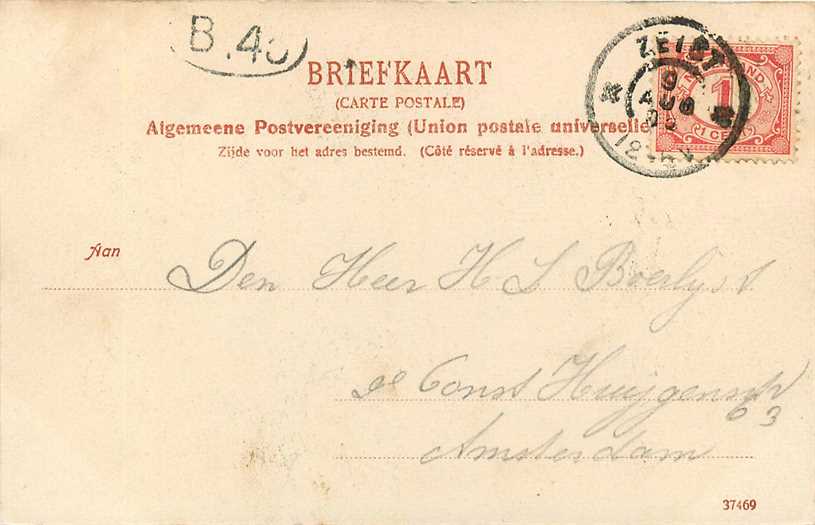 B.43
BRIEFKAART
(CARTE POSTALE)
Algemeene Postvereeniging (Union postale universelle)
Zijde voor het adres bestemd. (Côté réservé à l'adresse.)
ZEIST
AUG
1 CENT
Aan
Den Heer H L Boerlyst
Const Huijgensstr
63
Amsterdam
37469